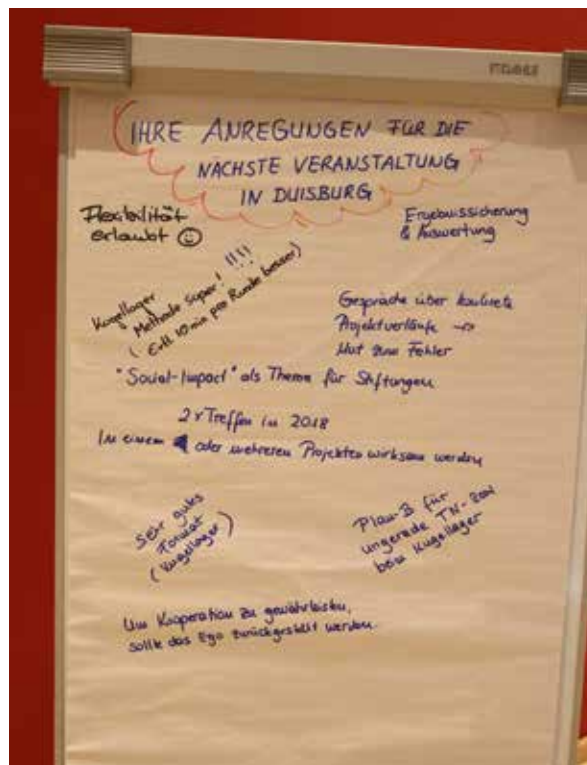 IHRE ANREGUNGEN FÜR DIE
NÄCHSTE VERANSTALTUNG
IN DUISBURG
Flexibilität
erlaubt ☺
Ergebnissicherung
& Auswertung
Kugellager
Methode super! !!!!
(Evtl. 10 min pro Runde besser)
Gespräche über konkrete
Projektverläufe →
Mut zum Fehler
"Social-Impact" als Thema für Stiftungen
2x Treffen in 2018
In einem oder mehreren Projekten wirksam werden
Sehr gutes
Format
(Kugellager)
Plan-B für
ungerade TN-Zahl
beim Kugellager
Um Kooperation zu gewährleisten,
sollte das Ego zurückgestellt werden.